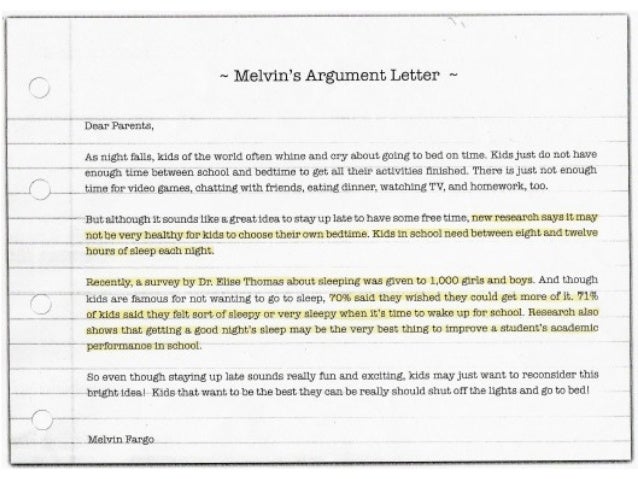 ~ Melvin's Argument Letter ~
Dear Parents,
As night falls, kids of the world often whine and cry about going to bed on time. Kids just do not have
enough time between school and bedtime to get all their activities finished. There is just not enough
time for video games, chatting with friends, eating dinner, watching TV, and homework, too.
But although it sounds like a great idea to stay up late to have some free time, new research says it may
not be very healthy for kids to choose their own bedtime. Kids in school need between eight and twelve
hours of sleep each night.
Recently, a survey by Dr. Elise Thomas about sleeping was given to 1,000 girls and boys. And though
kids are famous for not wanting to go to sleep, 70% said they wished they could get more of it. 71%
of kids said they felt sort of sleepy or very sleepy when it's time to wake up for school. Research also
shows that getting a good night's sleep may be the very best thing to improve a student's academic
performance in school.
So even though staying up late sounds really fun and exciting, kids may just want to reconsider this
bright idea! Kids that want to be the best they can be really should shut off the lights and go to bed!
Melvin Fargo